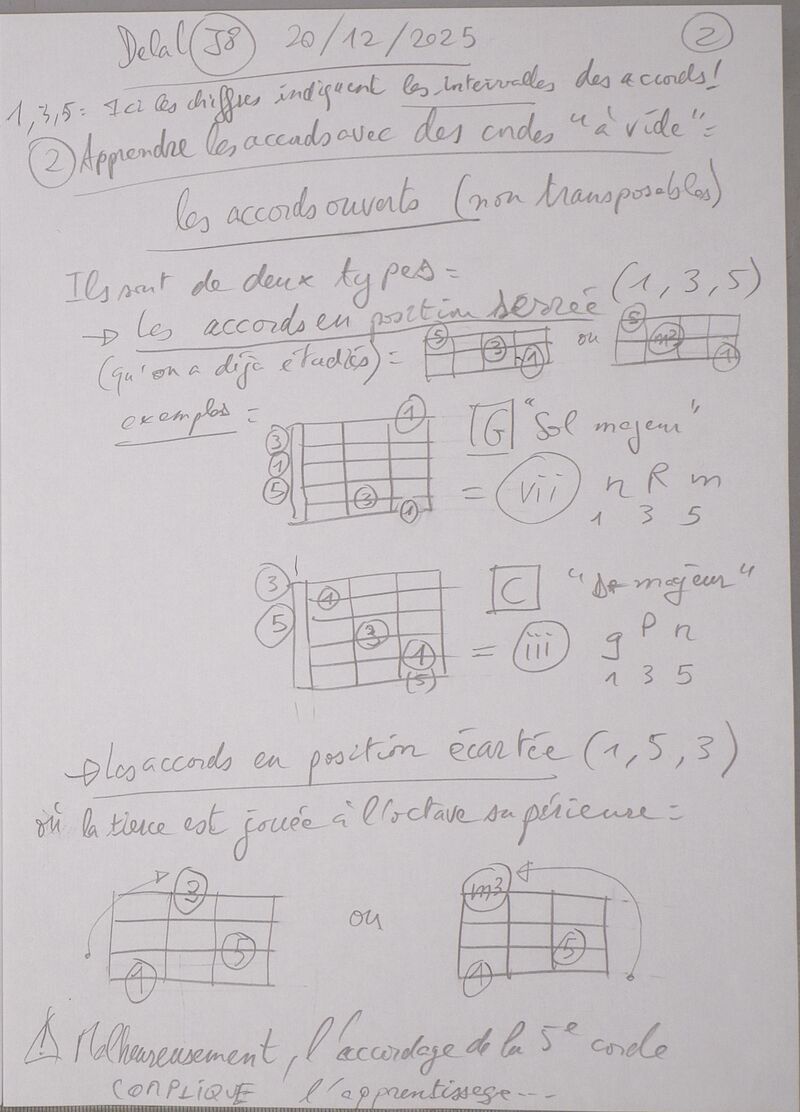 Delal J8 20/12/2025 2
1,3,5= Ici les chiffres indiquent les intervalles des accords!
2 Apprendre les accords avec des cordes "à vide"=
les accords ouverts (non transposables)
Ils sont de deux types=
→ les accords en position serrée (1, 3, 5)
(qu'on a déjà étudiés)= 5 3 1 ou 5 m3 1
exemples=
3 1 5 1 3 1 G "Sol majeur"
= vii n R m
1 3 5
3 5 1 3 1 (5) C "Do majeur"
= iii g P n
1 3 5
→ Les accords en position écartée (1, 5, 3)
où la tierce est jouée à l'octave supérieure=
3 5 1 ou m3 5 1
! Malheureusement, l'accordage de la 5e corde
COMPLIQUE l'apprentissage...